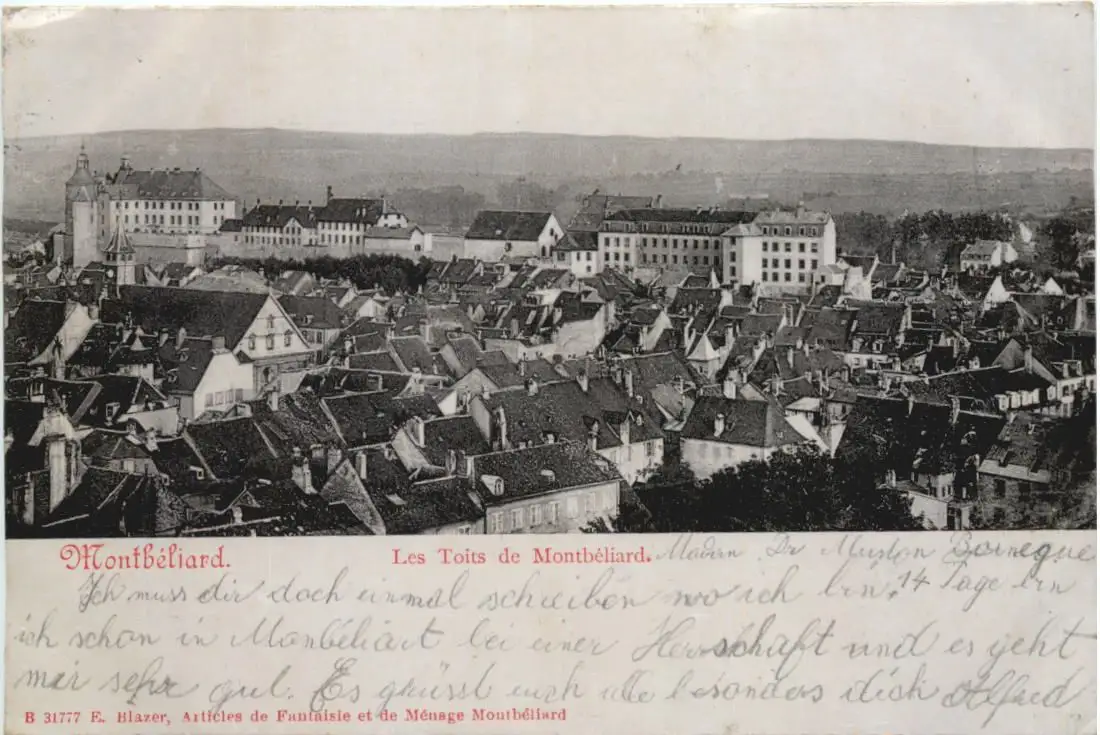 Montbéliard.
Les Toits de Montbéliard.
Madam Dr Muston Bornegue
Ich muss dir doch einmal schreiben wo ich bin, 14 Tage bin
ich schon in Monbéliart bei einer Herrschaft und es geht
mir sehr gut. Es grüsst euch alle besonders dich Alfred
B 31777 E. Blazer, Articles de Fantaisie et de Ménage Montbéliard